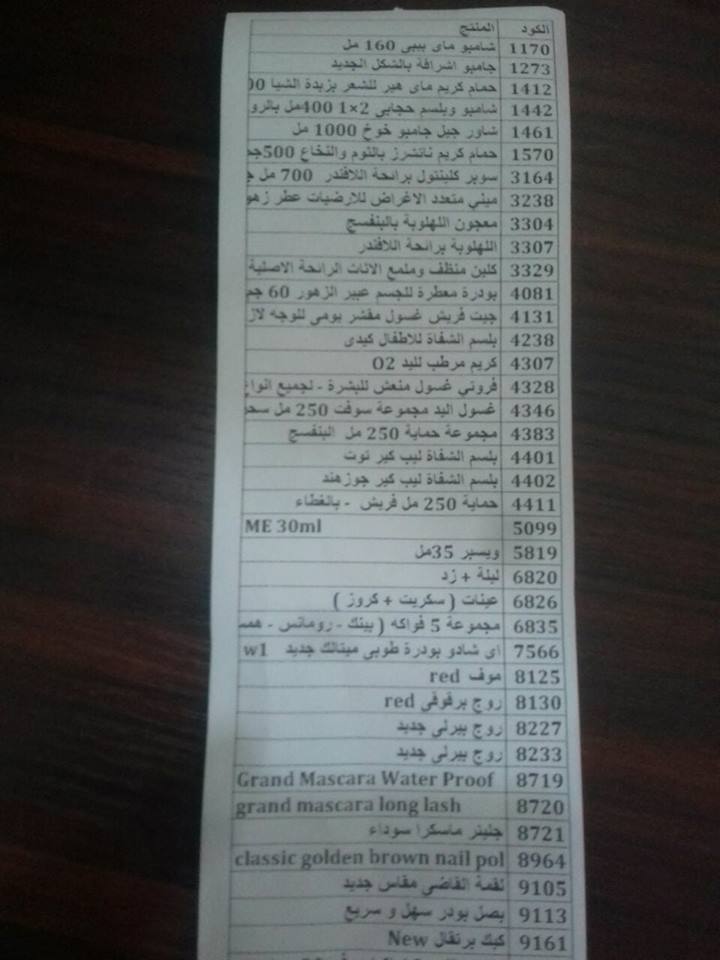 الكود المنتج
1170 شامبو ماى بيبى 160 مل
1273 جامبو اشراقة بالشكل الجديد
1412 حمام كريم ماى هير للشعر بزبدة الشيا 00
1442 شامبو وبلسم حجابى 2×1 400مل بالرو
1461 شاور جيل جامبو خوخ 1000 مل
1570 حمام كريم ناتشرز بالثوم والنخاع 500جم
3164 سوبر كلينتول برائحة اللافندر 700 مل ج
3238 ميني متعدد الاغراض للارضيات عطر زهو
3304 معجون اللهلوبة بالبنفسج
3307 اللهلوبة برائحة اللافندر
3329 كلين منظف وملمع الاثاث الرائحة الاصلية
4081 بودرة معطرة للجسم عبير الزهور 60 جم
4131 جيت فريش غسول مقشر يومى للوجه لاز
4238 بلسم الشفاة للاطفال كيدى
4307 كريم مرطب لليد O2
4328 فروتي غسول منعش للبشرة - لجميع انواع
4346 غسول اليد مجموعة سوفت 250 مل سحر
4383 مجموعة حماية 250 مل البنفسج
4401 بلسم الشفاة ليب كير توت
4402 بلسم الشفاة ليب كير جوزهند
4411 حماية 250 مل فريش - بالغطاء
5099 ME 30ml
5819 ويسبر 35مل
6820 ليلة + زد
6826 عينات ( سكريت + كروز )
6835 مجموعة 5 فواكه ( بينك - رومانس - همس
7566 اى شادو بودرة طوبى ميتالك جديد w1
8125 موف red
8130 روج برقوقى red
8227 روج بيرلى جديد
8233 روج بيرلى جديد
8719 Grand Mascara Water Proof
8720 grand mascara long lash
8721 جليتر ماسكرا سوداء
8964 classic golden brown nail pol
9105 لقمة القاضى مقاس جديد
9113 بصل بودر سهل و سريع
9161 كيك برتقال New